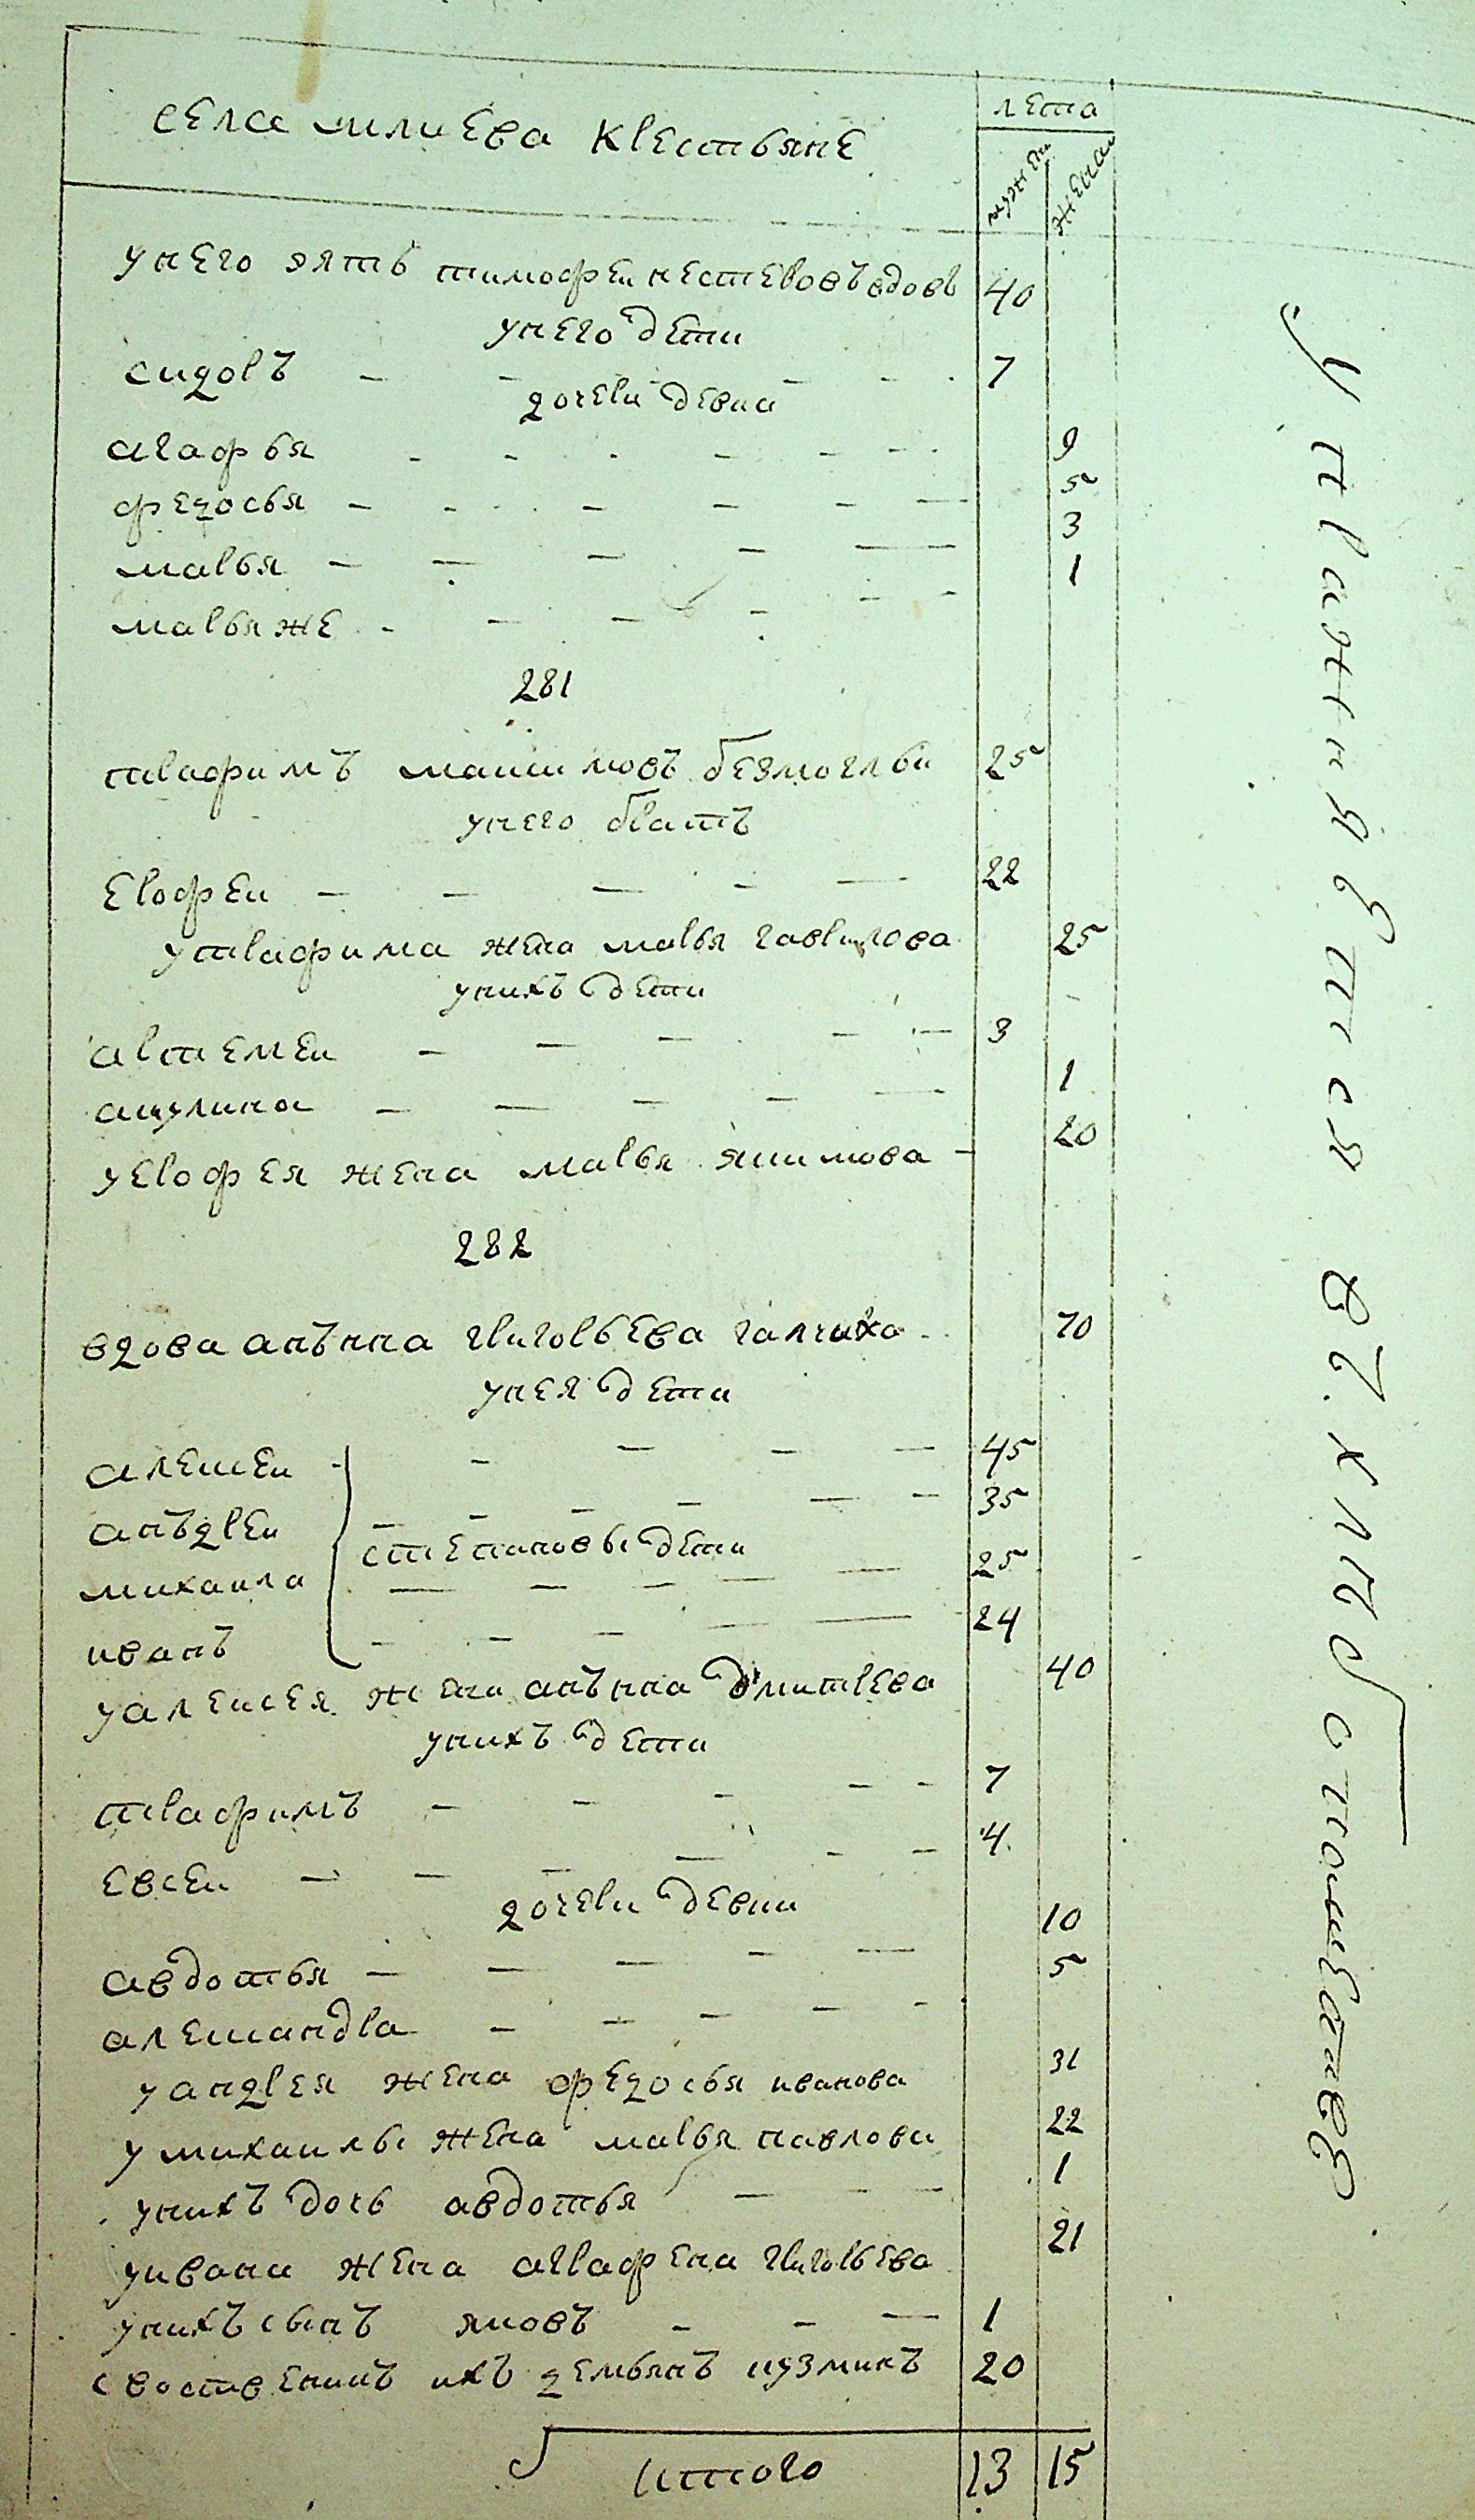 села млиева крестьяне
лета
мужей
женап
у него зять тимофеи нестеровъ вдовъ 40
у него дети
сидоръ 7
дочери девки
агафья 9
федосья 5
марья 3
марья же 1
281
трафимъ максимовъ безмоглыи 25
у него братъ
ерофеи 22
у трафима жена марья гаврилова 25
у нихъ дети
артемеи 3
акулина 1
у ерофея жена марья якимова 20
282
вдова анъна григорьева галчиха 70
у нея дети
алексеи 45
анъдреи 35
степановы дети
михаила 25
иванъ 24
у алексея жена анъна дмитрева 40
у нихъ дети
трафимъ 7
евсеи 4
дочери девки
авдотья 10
александра 5
у андрея жена федосья иванова 31
у михаилы жена марья павлова 22
у нихъ дочь авдотья 1
у ивана жена аграфена григорьева 21
у нихъ сынъ яковъ 1
своственикъ ихъ демьянъ кузминъ 20
итого 13 15